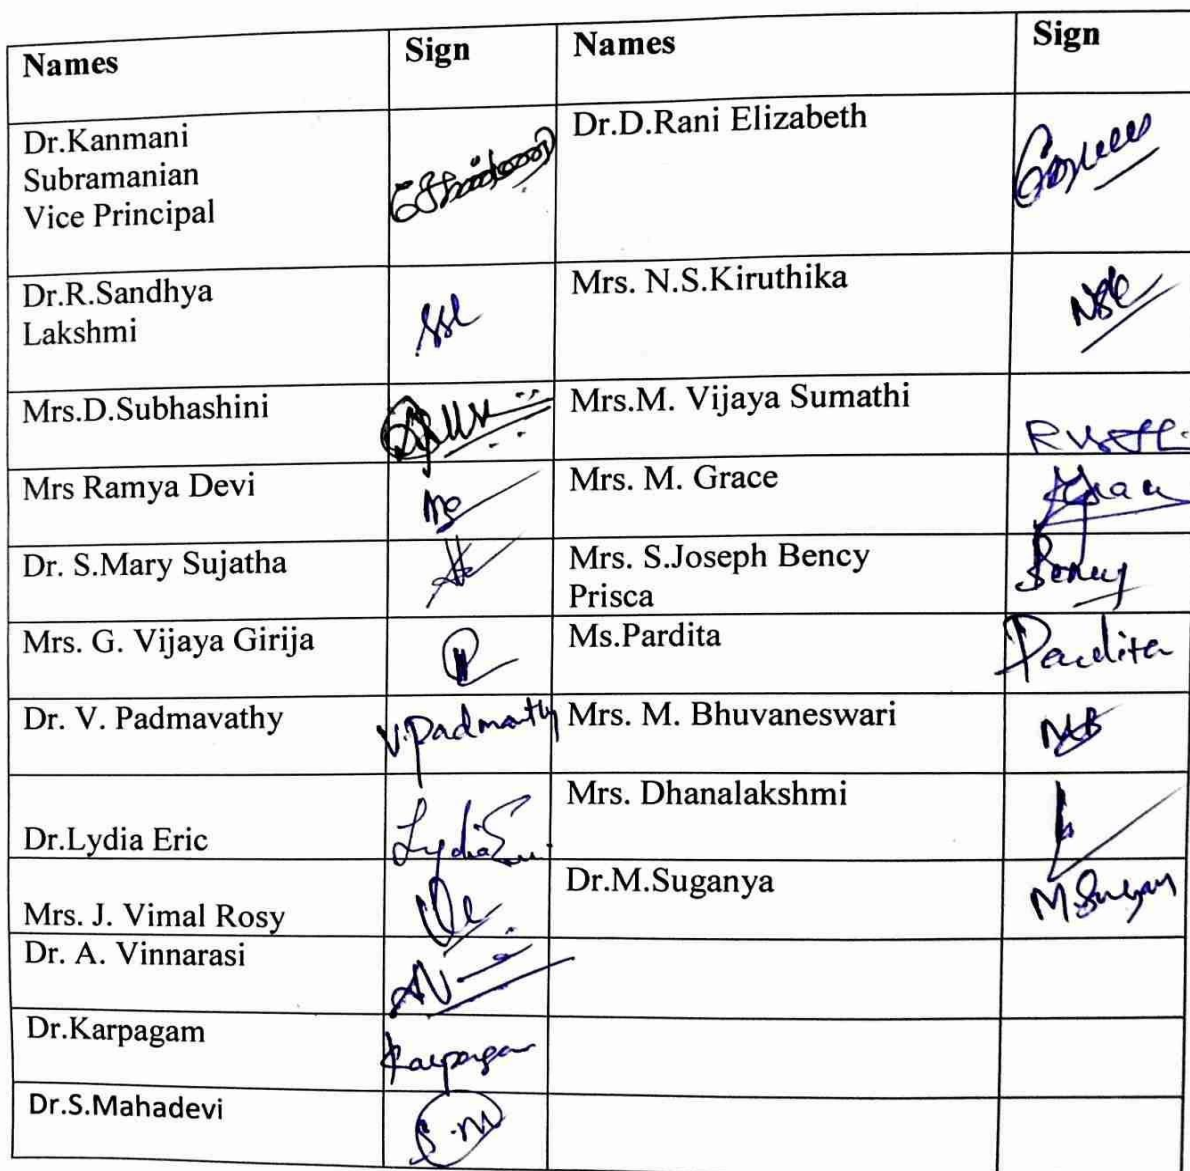 Names Sign Names Sign
Dr.Kanmani
Subramanian
Vice Principal
Dr.D.Rani Elizabeth
Dr.R.Sandhya
Lakshmi
SSL
Mrs. N.S.Kiruthika
NSK
Mrs.D.Subhashini
Mrs.M. Vijaya Sumathi
Mrs Ramya Devi
Mrs. M. Grace
Grace
Dr. S.Mary Sujatha
Mrs. S.Joseph Bency
Prisca
Bency
Mrs. G. Vijaya Girija
Ms.Pardita
Pardita
Dr. V. Padmavathy
Mrs. M. Bhuvaneswari
MB
Dr.Lydia Eric
Mrs. Dhanalakshmi
Mrs. J. Vimal Rosy
Dr.M.Suganya
Dr. A. Vinnarasi
AV
Dr.Karpagam
Karpagam
Dr.S.Mahadevi
S.M